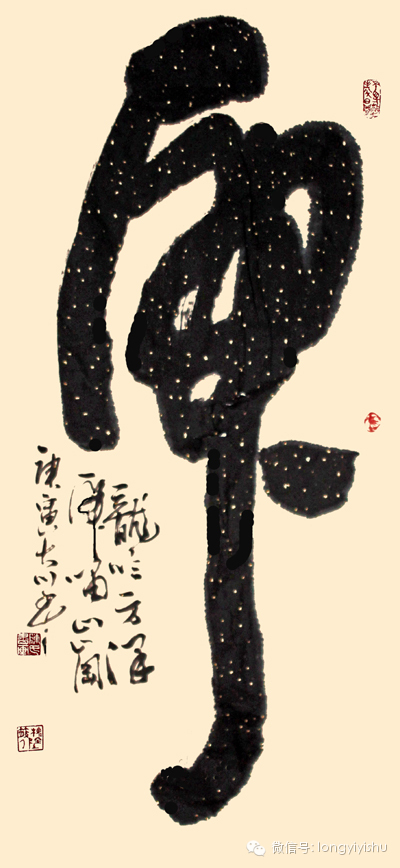 虎
龍吟方澤
虎嘯山崗
庚寅大川書
微信号: longyiyishu